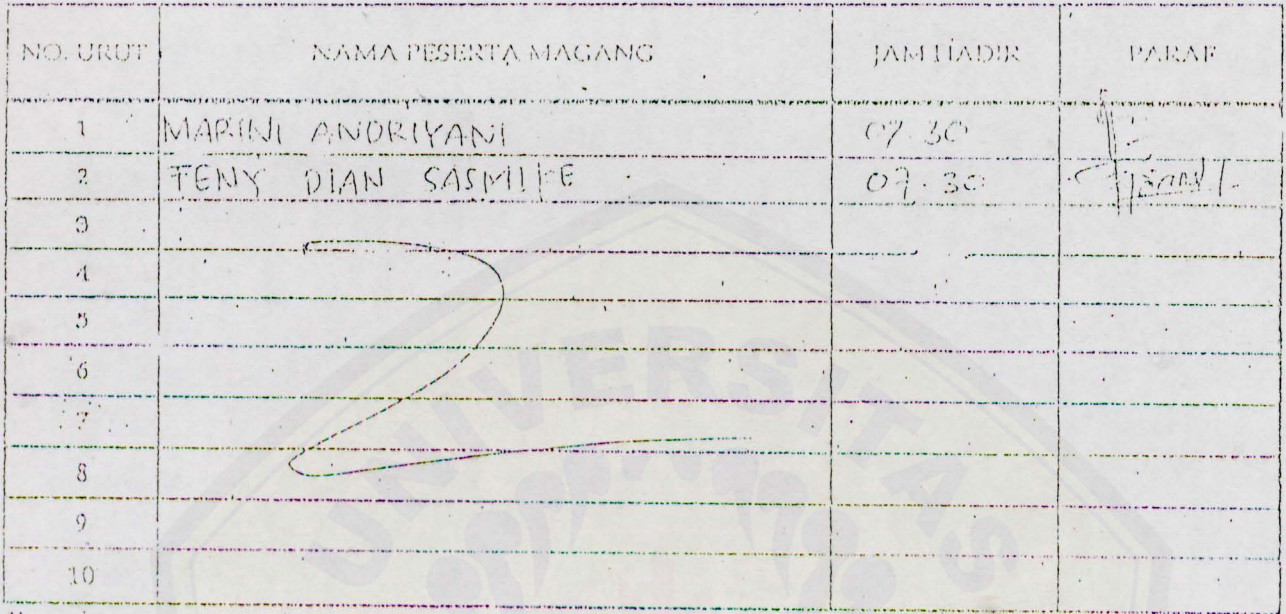 NO. URUT NAMA PESERTA MAGANG JAM HADIR PARAF
1 MARINI ANDRIYANI 07.30
2 TENY DIAN 07.30
3
4
5
6
7
8
9
10
UNIVERSITAS